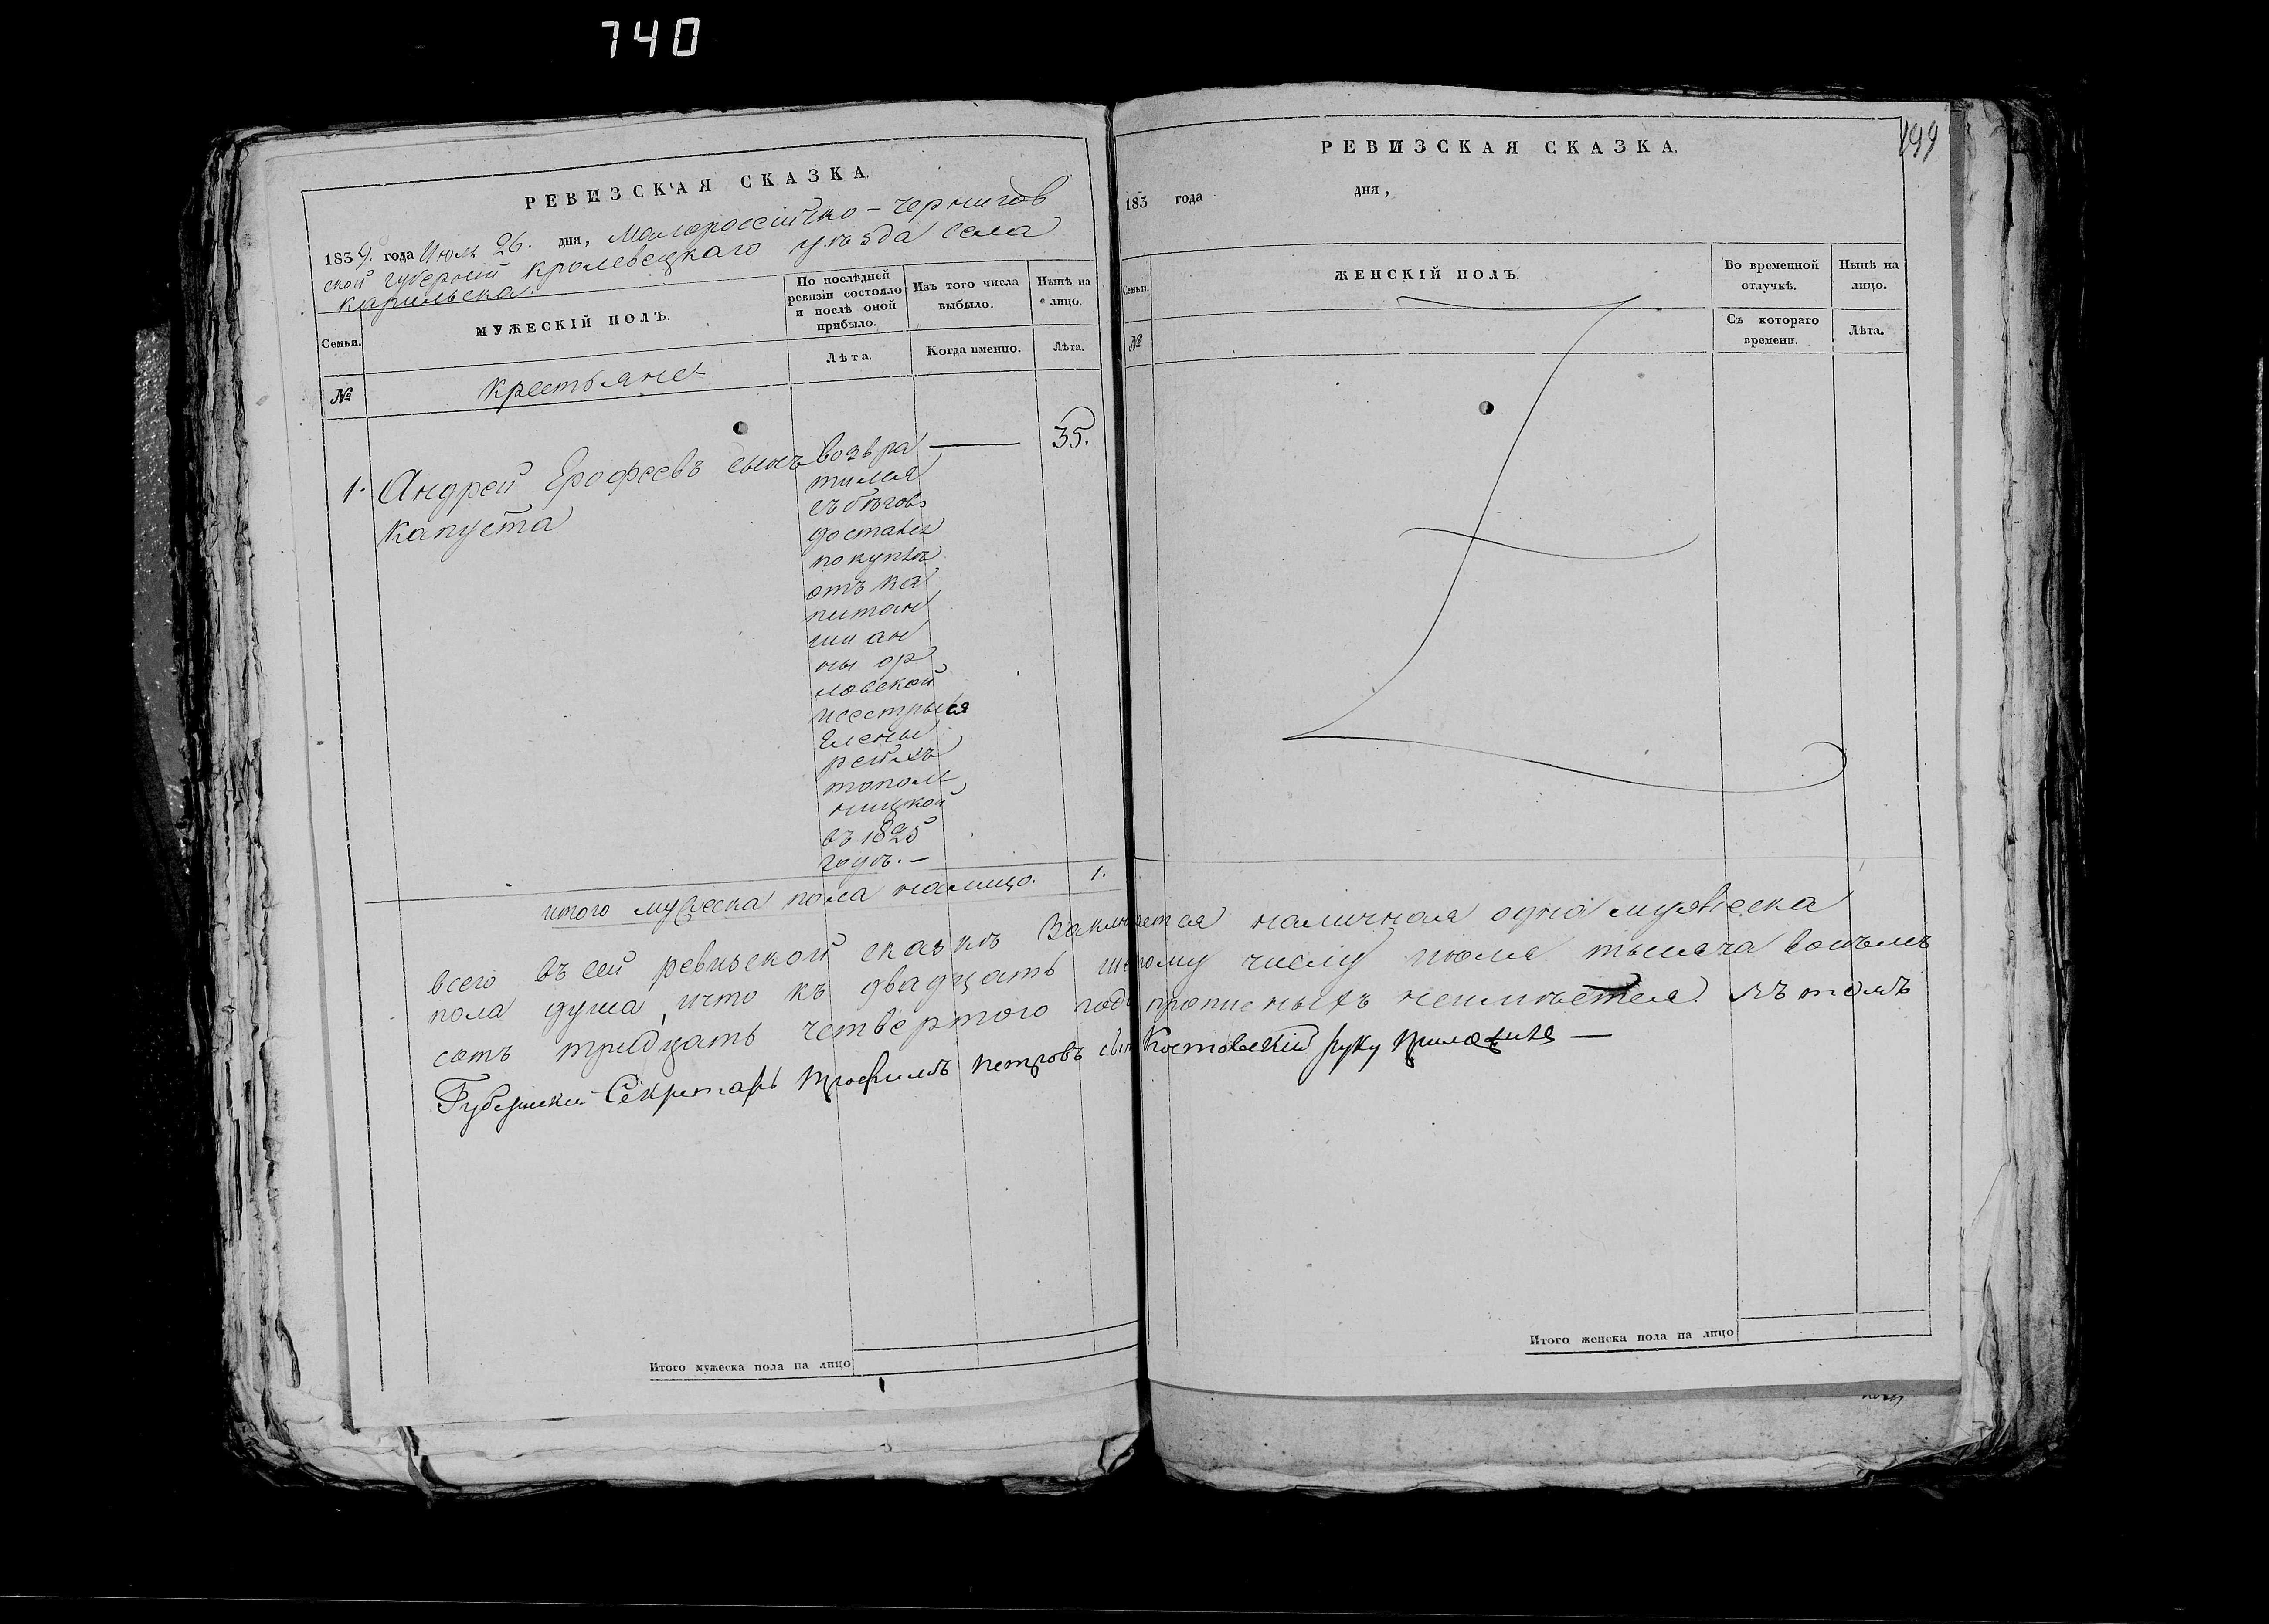 740
РЕВИЗСКАЯ СКАЗКА.
1834. года Июля 26. дня, Малороссійско-Чернигов
ской губерніи Кролевецкаго уѣзда села
Карильска.
Семьи.
МУЖЕСКІЙ ПОЛЪ.
По послѣдней ревизіи состояло и послѣ оной прибыло.
Изъ того числа выбыло.
Нынѣ на лицо.
Лѣта.
Когда именно.
Лѣта.
№
крестьяне
1. Андрей Ерофеевъ сынъ
Капуста
возвра
тился
съ бѣговъ
достался
покупкъ
отъ ка
питан
ши ан
ны ор
ловской
исестрыея
Елены
топол
ницкой
въ 1825
годѣ. —
35.
итого мужеска пола налицо. 1.
РЕВИЗСКАЯ СКАЗКА.
199
183 года дня,
Семьи.
ЖЕНСКІЙ ПОЛЪ.
Во временной отлучкѣ.
Нынѣ на лицо.
№
Съ котораго времени.
Лѣта.
всего въ сей ревизской сказкѣ заключается наличная одна мужеска
пола душа, ичто къ двадцать шестому числу июля тысяча восъмъ
сотъ тридцать четвертого года прописныхъ неимѣется. Въ томъ
Губернский Секретарь Трофимъ Петровъ сынъ Костовский руку приложилъ —
Итого мужеска пола на лицо
Итого женска пола на лицо